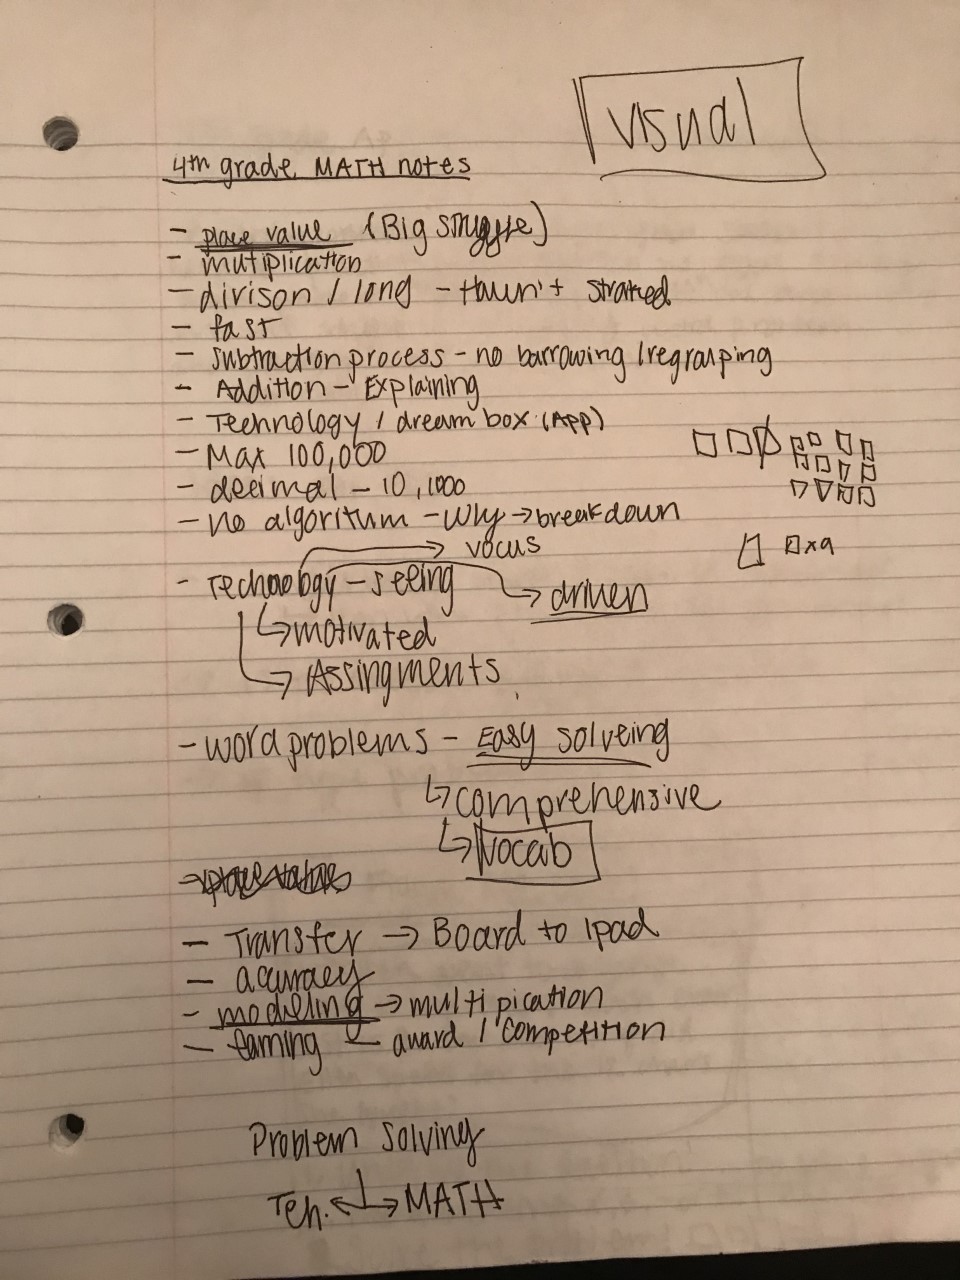 visual
4th grade MATH notes
- place value (Big struggle)
- mutiplication
- divison / long - Haven't started
- fast
- subtraction process - no barrowing / regrasping
- Addition - Explaining
- Technology / dream box (App)
- Max 100,000
- decimal - 10, 1000
- no algoritum - Why → breakdown
→ vocus
□ □xa
- Technology - seeing → driven
↳ motivated
→ Assingments
- word problems - Easy solveing
↳ comprehensive
↳ Vocab
- Transfer → Board to Ipad
- accuracy
- modeling → multipication
- earning ← award / competition
Problem solving
Teh. ← → MATH